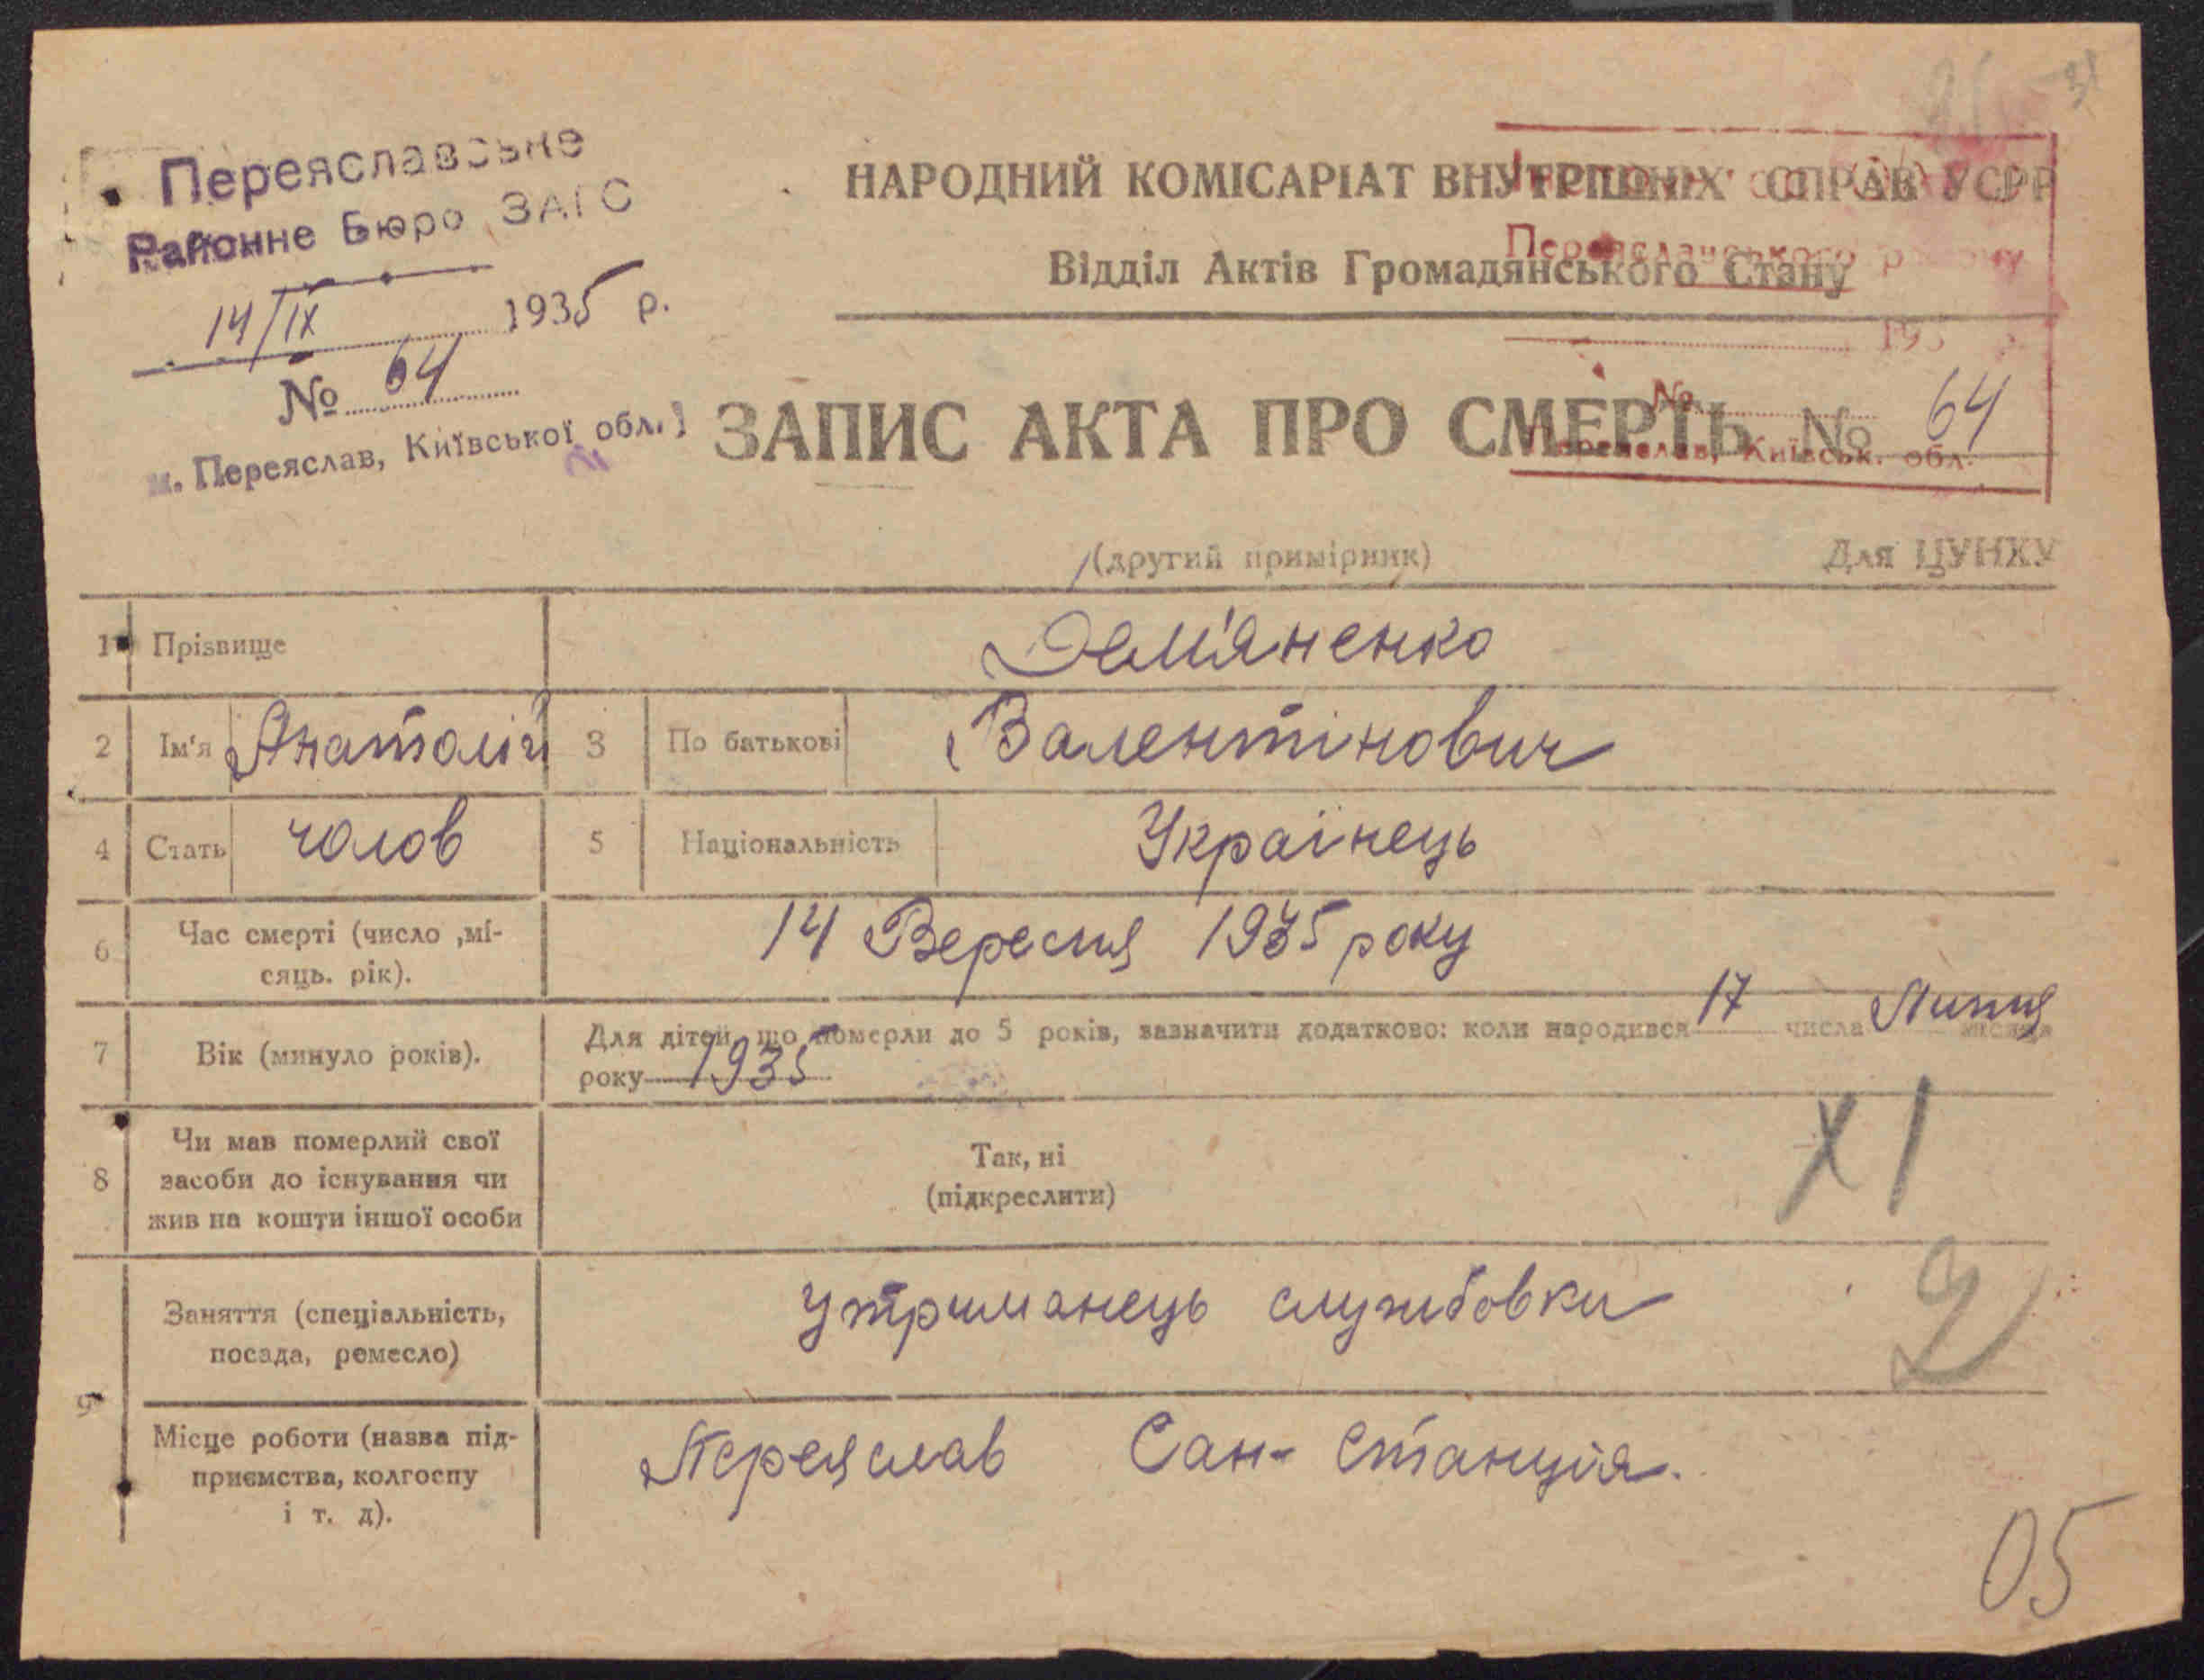 Переяславське
Районне Бюро ЗАГС
14/IX 1935 р.
№ 64
м. Переяслав, Київської обл.
НАРОДНИЙ КОМІСАРІАТ ВНУТРІШНІХ СПРАВ УСРР
Відділ Актів Громадянського Стану
Переяславського
193
№
Переяслав, Київськ. обл.
ЗАПИС АКТА ПРО СМЕРТЬ № 64
(другий примірник) Для ЦУНХУ
1 Прізвище Дем'яненко
2 Ім'я Анатолій 3 По батькові Валентінович
4 Стать чолов 5 Національність Українець
6 Час смерті (число ,мі-
сяць. рік). 14 Вересня 1935 року
7 Вік (минуло років). Для дітей, що померли до 5 років, зазначити додатково: коли народився 17 числа Липня місяця
року 1935
8 Чи мав померлий свої
засоби до існування чи
жив на кошти іншої особи
Так, ні
(підкреслити)
XI
2
9 Заняття (спеціальність,
посада, ремесло) утриманець службовки
Місце роботи (назва під-
приємства, колгоспу
і т. д). Переяслав Сан- Станція.
05